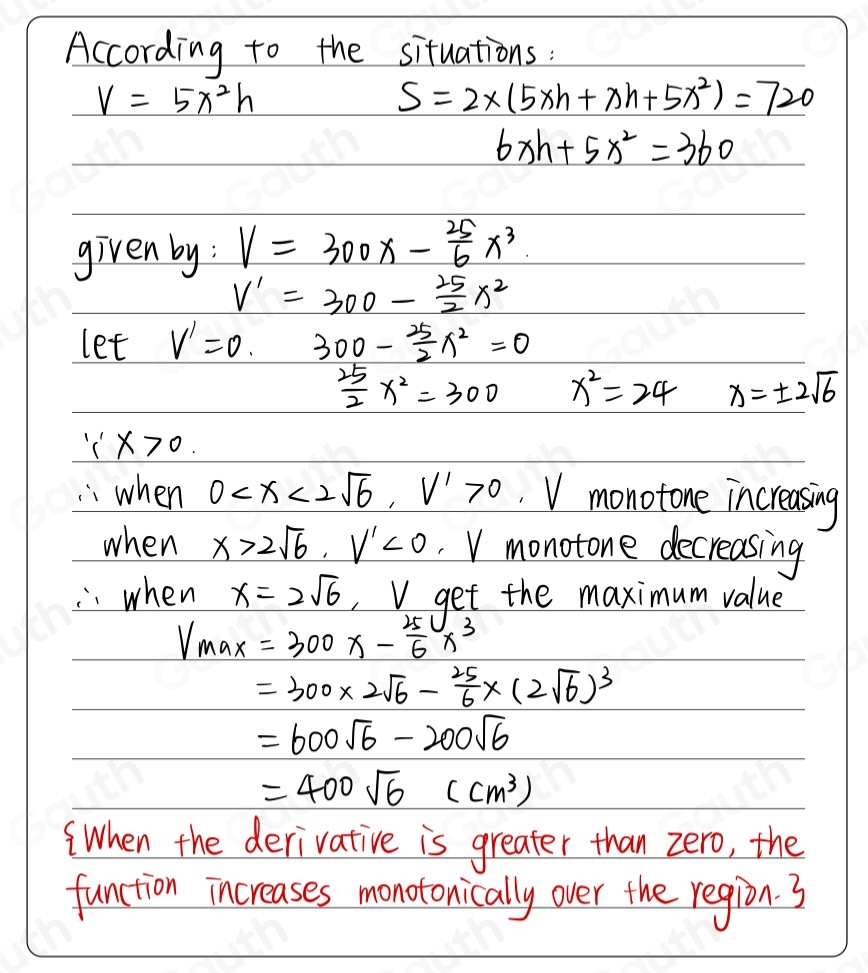 According to the situations:
V = 5x²h S = 2×(5xh + xh + 5x²) = 720
6xh + 5x² = 360
given by: V = 300x - 25/6 x³.
V' = 300 - 25/2 x²
let V' = 0. 300 - 25/2 x² = 0
25/2 x² = 300 x² = 24 x = ±2√6
∵ x > 0.
∴ when 0 < x < 2√6, V' > 0, V monotone increasing
when x > 2√6, V' < 0, V monotone decreasing
∴ when x = 2√6, V get the maximum value
Vmax = 300x - 25/6 x³
= 300 × 2√6 - 25/6 × (2√6)³
= 600√6 - 200√6
= 400√6 (cm³)
{When the derivative is greater than zero, the
function increases monotonically over the region.}